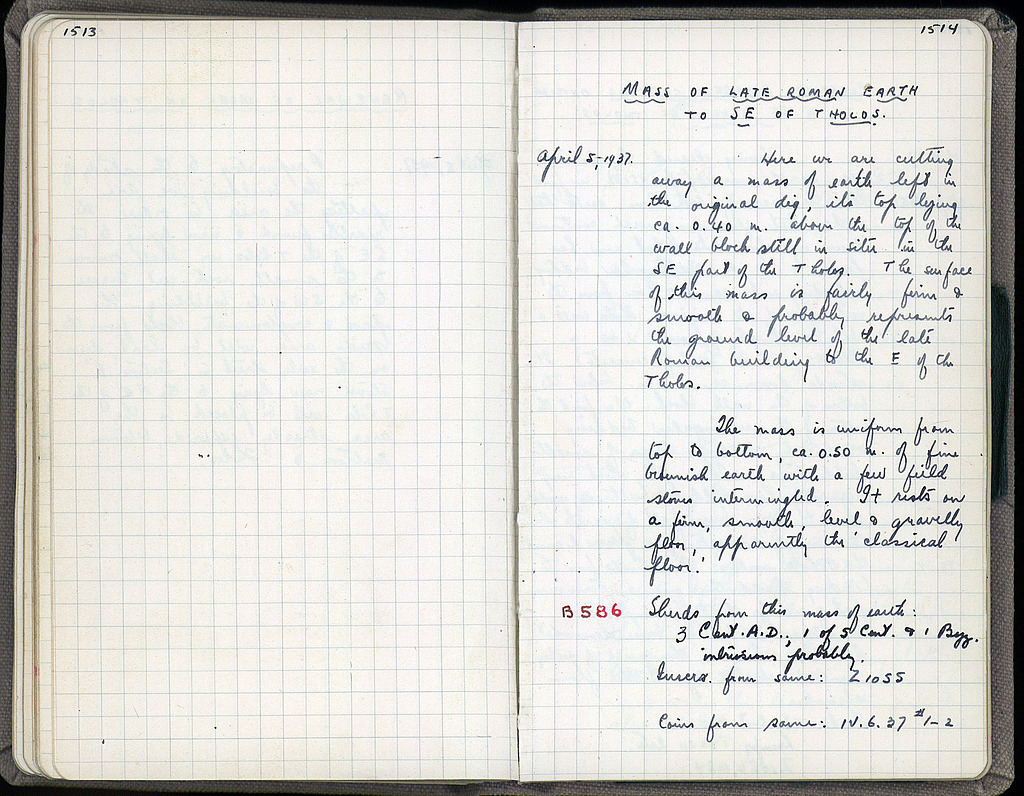 1513
1514
MASS OF LATE ROMAN EARTH
TO SE OF THOLOS.
April 5, 1937. Here we are cutting
away a mass of earth left in
the original dig, its top lying
ca. 0.40 m. above the top of the
wall block still in situ in the
SE part of the Tholos. The surface
of this mass is fairly firm &
smooth & probably represents
the ground level of the late
Roman building to the E of the
Tholos.
The mass is uniform from
top to bottom, ca. 0.50 m. of fine
brownish earth with a few field
stones intermingled. It rests on
a firm, smooth, level & gravelly
floor, apparently the 'classical
floor.'
B 586 Sherds from this mass of earth:
3 Cent. A.D., 1 of 5 Cent. & 1 Byz.
intrusions probably.
Inscr. from same: Z 1055
Coins from same: IV.6.37 #1-2